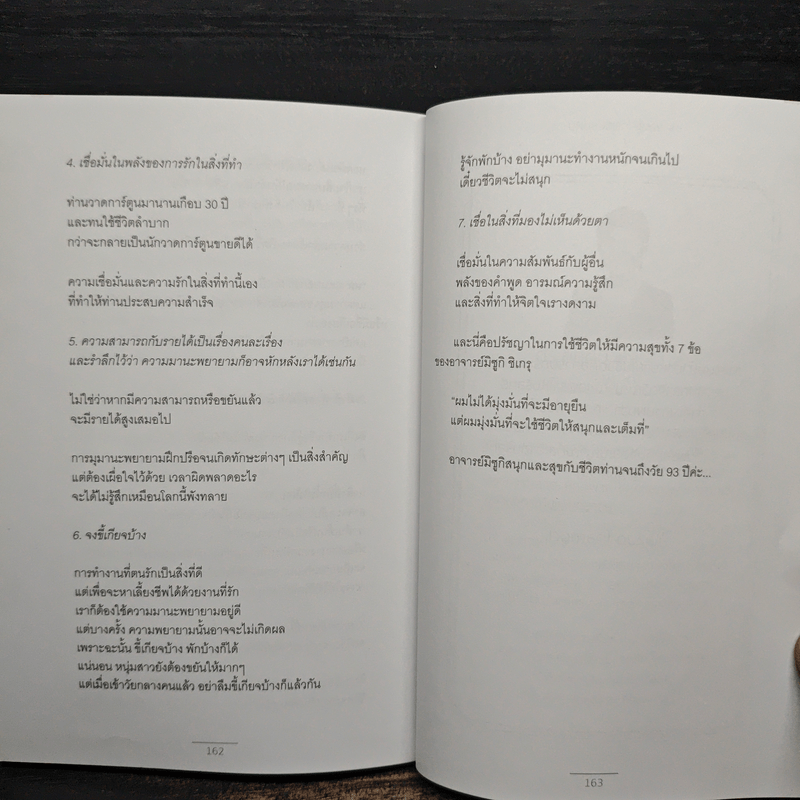 4. เชื่อมั่นในพลังของการรักในสิ่งที่ทำ
ท่านวาดการ์ตูนมานานเกือบ 30 ปี
และทนใช้ชีวิตลำบาก
กว่าจะกลายเป็นนักวาดการ์ตูนขายดีได้
ความเชื่อมั่นและความรักในสิ่งที่ทำนี้เอง
ที่ทำให้ท่านประสบความสำเร็จ
5. ความสามารถกับรายได้เป็นเรื่องคนละเรื่อง
และรำลึกไว้ว่า ความมานะพยายามก็อาจหักหลังเราได้เช่นกัน
ไม่ใช่ว่าหากมีความสามารถหรือขยันแล้ว
จะมีรายได้สูงเสมอไป
การมุมานะพยายามฝึกปรือจนเกิดทักษะต่างๆ เป็นสิ่งสำคัญ
แต่ต้องเผื่อใจไว้ด้วย เวลาผิดพลาดอะไร
จะได้ไม่รู้สึกเหมือนโลกนี้พังทลาย
6. จงขี้เกียจบ้าง
การทำงานที่ตนรักเป็นสิ่งที่ดี
แต่เพื่อจะหาเลี้ยงชีพได้ด้วยงานที่รัก
เราก็ต้องใช้ความมานะพยายามอยู่ดี
แต่บางครั้ง ความพยายามนั้นอาจจะไม่เกิดผล
เพราะฉะนั้น ขี้เกียจบ้าง พักบ้างก็ได้
แน่นอน หนุ่มสาวยังต้องขยันให้มากๆ
แต่เมื่อเข้าวัยกลางคนแล้ว อย่าลืมขี้เกียจบ้างก็แล้วกัน
162
รู้จักพักบ้าง อย่ามุมานะทำงานหนักจนเกินไป
เดี๋ยวชีวิตจะไม่สนุก
7. เชื่อในสิ่งที่มองไม่เห็นด้วยตา
เชื่อมั่นในความสัมพันธ์กับผู้อื่น
พลังของคำพูด อารมณ์ความรู้สึก
และสิ่งที่ทำให้จิตใจเรางดงาม
และนี่คือปรัชญาในการใช้ชีวิตให้มีความสุขทั้ง 7 ข้อ
ของอาจารย์มิซูกิ ชิเกรุ
"ผมไม่ได้มุ่งมั่นที่จะมีอายุยืน
แต่ผมมุ่งมั่นที่จะใช้ชีวิตให้สนุกและเต็มที่"
อาจารย์มิซูกิสนุกและสุขกับชีวิตท่านจนถึงวัย 93 ปีค่ะ...
163